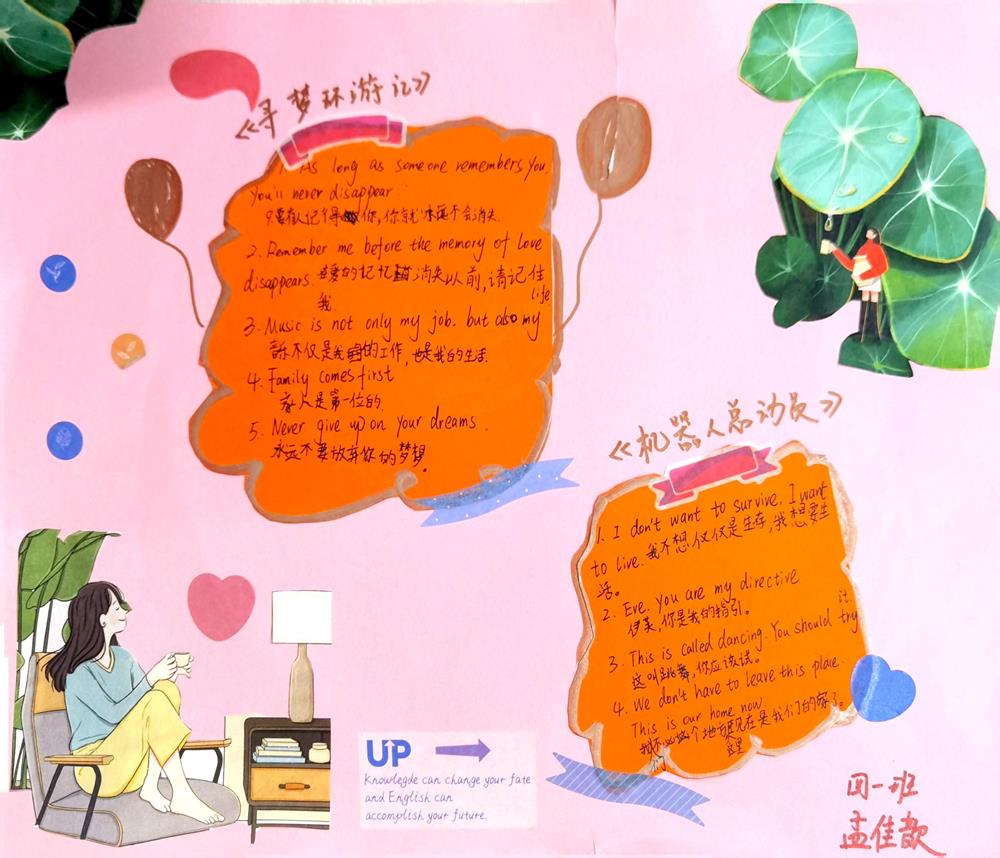 《寻梦环游记》
1. As long as someone remembers you,
You'll never disappear.
只要有人记得你,你就永远不会消失
2. Remember me before the memory of love
disappears. 在爱的记忆消失以前,请记住
我.
3. Music is not only my job. but also my life
音乐不仅是我的工作,也是我的生活.
4. Family comes first
家人是第一位的.
5. Never give up on your dreams.
永远不要放弃你的梦想。
《机器人总动员》
1. I don't want to survive. I want
to live. 我不想仅仅是生存,我想要生
活。
2. Eve. you are my directive
伊芙,你是我的指引。
3. This is called dancing. You should try it
这叫跳舞,你应该试。
4. We don't have to leave this place.
This is our home now.
这个地方现在是我们的家了。
这里
UP
Knowlegde can change your fate
and English can
accomplish your future.
四一班
孟佳歆